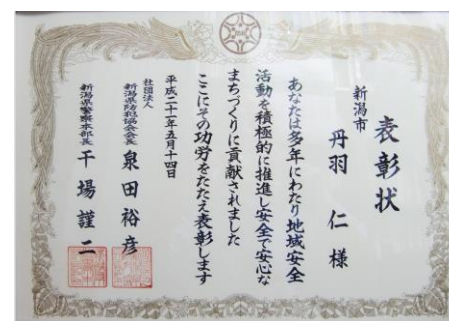 表彰状
新潟市
丹羽 仁 様
あなたは多年にわたり地域安全
活動を積極的に推進し安全で安心な
まちづくりに貢献されました
ここにその功労をたたえ表彰します
平成二十一年五月十四日
社団法人
新潟県防犯協会会長 泉田裕彦
新潟県警察本部長 干場謹二